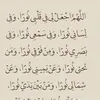 اللَّهُمَّ اجْعَلْ لِي فِي قَلْبِي نُورًا، وَفِي
لِسَانِي نُورًا، وَفِي سَمْعِي نُورًا، وَفِي
بَصَرِي نُورًا، وَمِنْ فَوْقِي نُورًا، وَمِنْ
تَحْتِي نُورًا، وَعَنْ يَمِينِي نُورًا، وَعَنْ
شِمَالِي نُورًا، وَمِنْ بَيْنِ يَدَيَّ نُورًا،